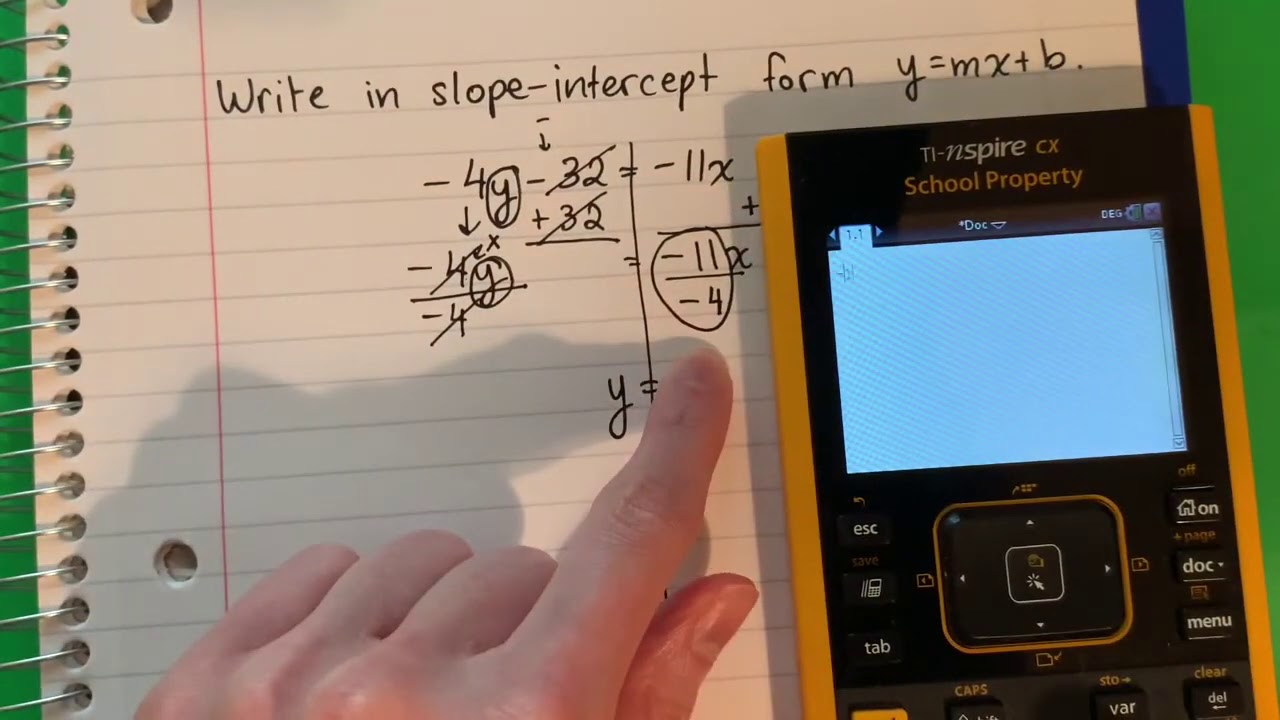 Write in slope-intercept form y=mx+b.
-
↓
-4y -32 = -11x
+32 +
↓ ex
-4y = -11x
-4 -4
y =
TI-nspire CX
School Property
1.1 *Doc DEG
esc
save
tab
off
on
+ page
doc
menu
CAPS
sto→
var
clear
del